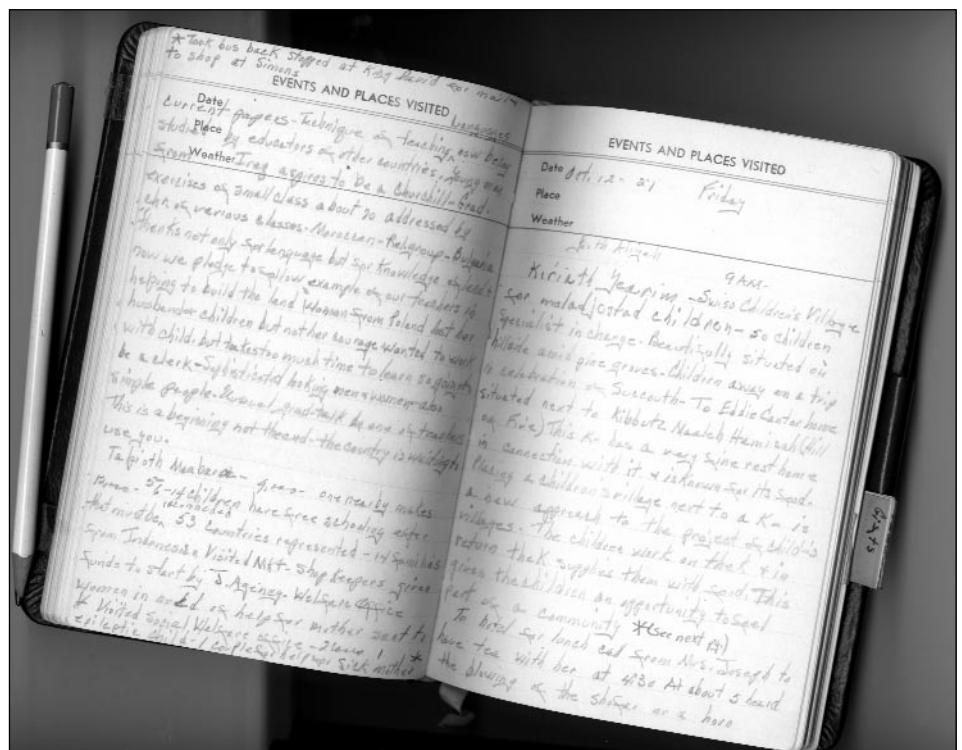 * Took bus back stopped at King David for mail &
to shop at Simons
EVENTS AND PLACES VISITED
languages
Date
Current papers - Technique of teaching now being
Place
studied by educators of other countries. Young man
Weather
from Iraq aspires to be a Churchill - Grad.
exercises of small class about 20 addressed by
of various classes - Moroccan - Bulgaria
Thanks not only for language but for knowledge of land &
now we pledge to follow example of our teachers in
helping to build the land Woman from Poland lost her
husband & children but not her courage wanted to work
with child. but takes too much time to learn so going to
be a clerk - Sophisticated looking men & women - also
simple people. Unusual grad - talk by one of teachers
This is a beginning not the end - the country is waiting to
use you.
Talpioth Maabara - 9,000 - one nearby makes
- 5 - 14 children have free schooling after
that must be 53 countries represented - 14 families
from Indonesia Visited Mkt. Shop Keepers given
funds to start by J. Agency - Welfare Office
women in need of help for mother sent to
* Visited Social Welfare office -
epileptic child - 1 couple for help for sick mother *
EVENTS AND PLACES VISITED
Date Oct. 12 - 51 Friday
Place
Weather
9 AM -
Kiriath Yearim - Swiss Children's Village
for maladjostad children - 50 children
Specialist in charge - Beautifully situated on
hillside amid pine groves - Children away on a trip
in celebration of Succouth - To Eddie Cantor home
situated next to Kibbutz Maaleh Hamisah (Hill
of Five) This K - has a very fine rest home
in connection with it & is known for its food.
Placing a children's village next to a K - is
a new approach to the project of child's
villages. The children work on the K & in
return the K supplies them with food. This
gives the children an opportunity to feel
part of a community *(see next pg.)
To hotel for lunch call from Mrs. Joseph to
have tea with her at 4:30 At about 5 heard
the blowing of the shofar or a horn
Gifts